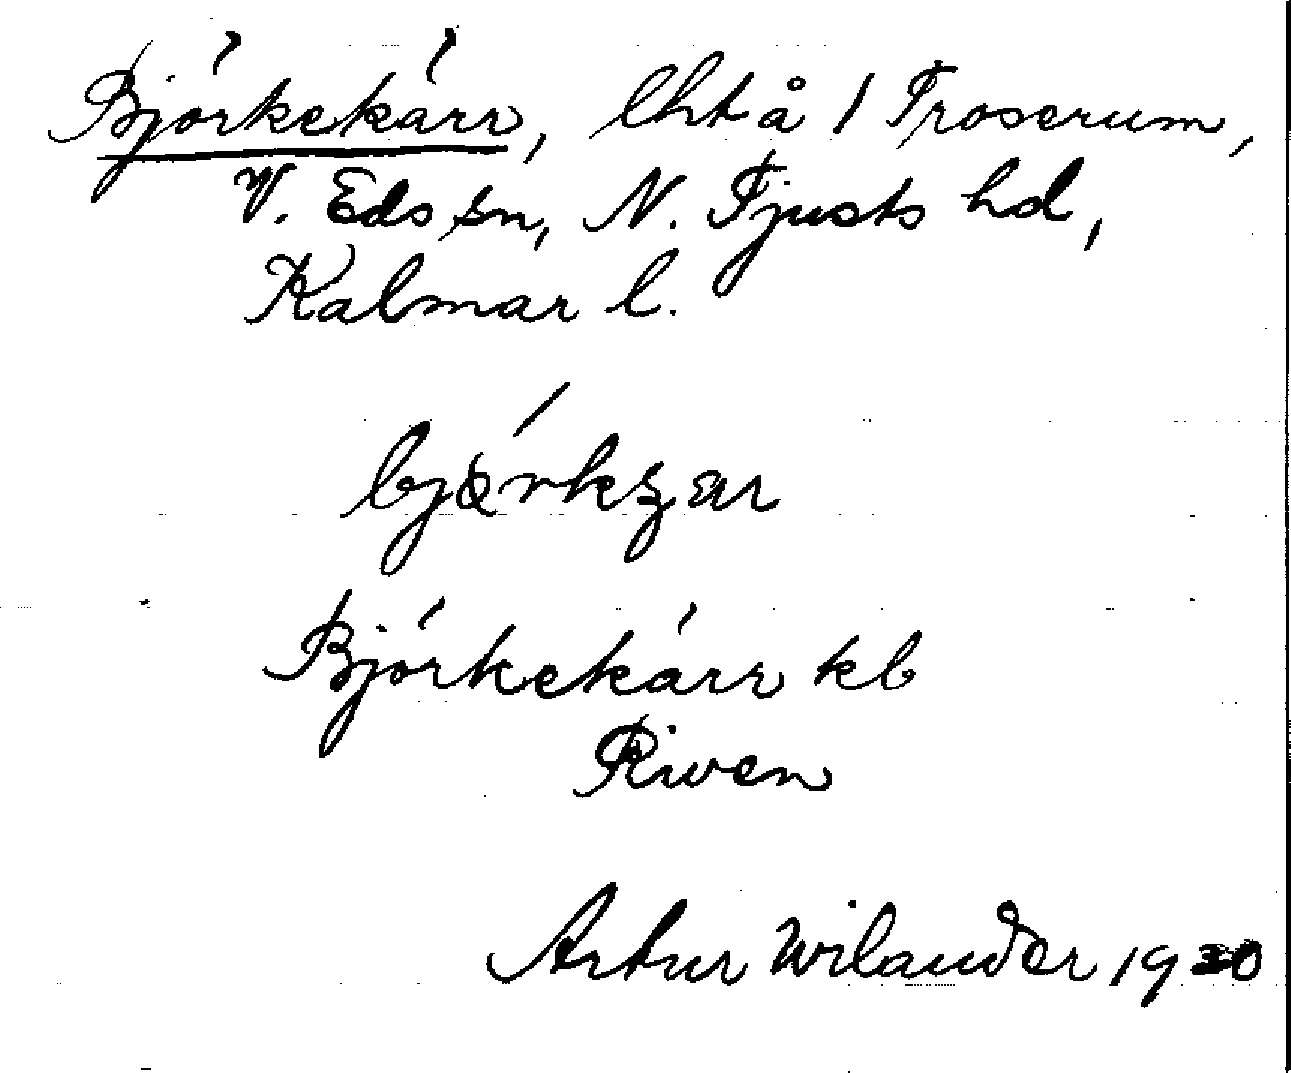 Björkekärr, lht å 1 Troserum,
V. Eds sn, N. Tjusts hd,
Kalmar l.
Björkekärr kb
Riven
Artur Wilander 1930